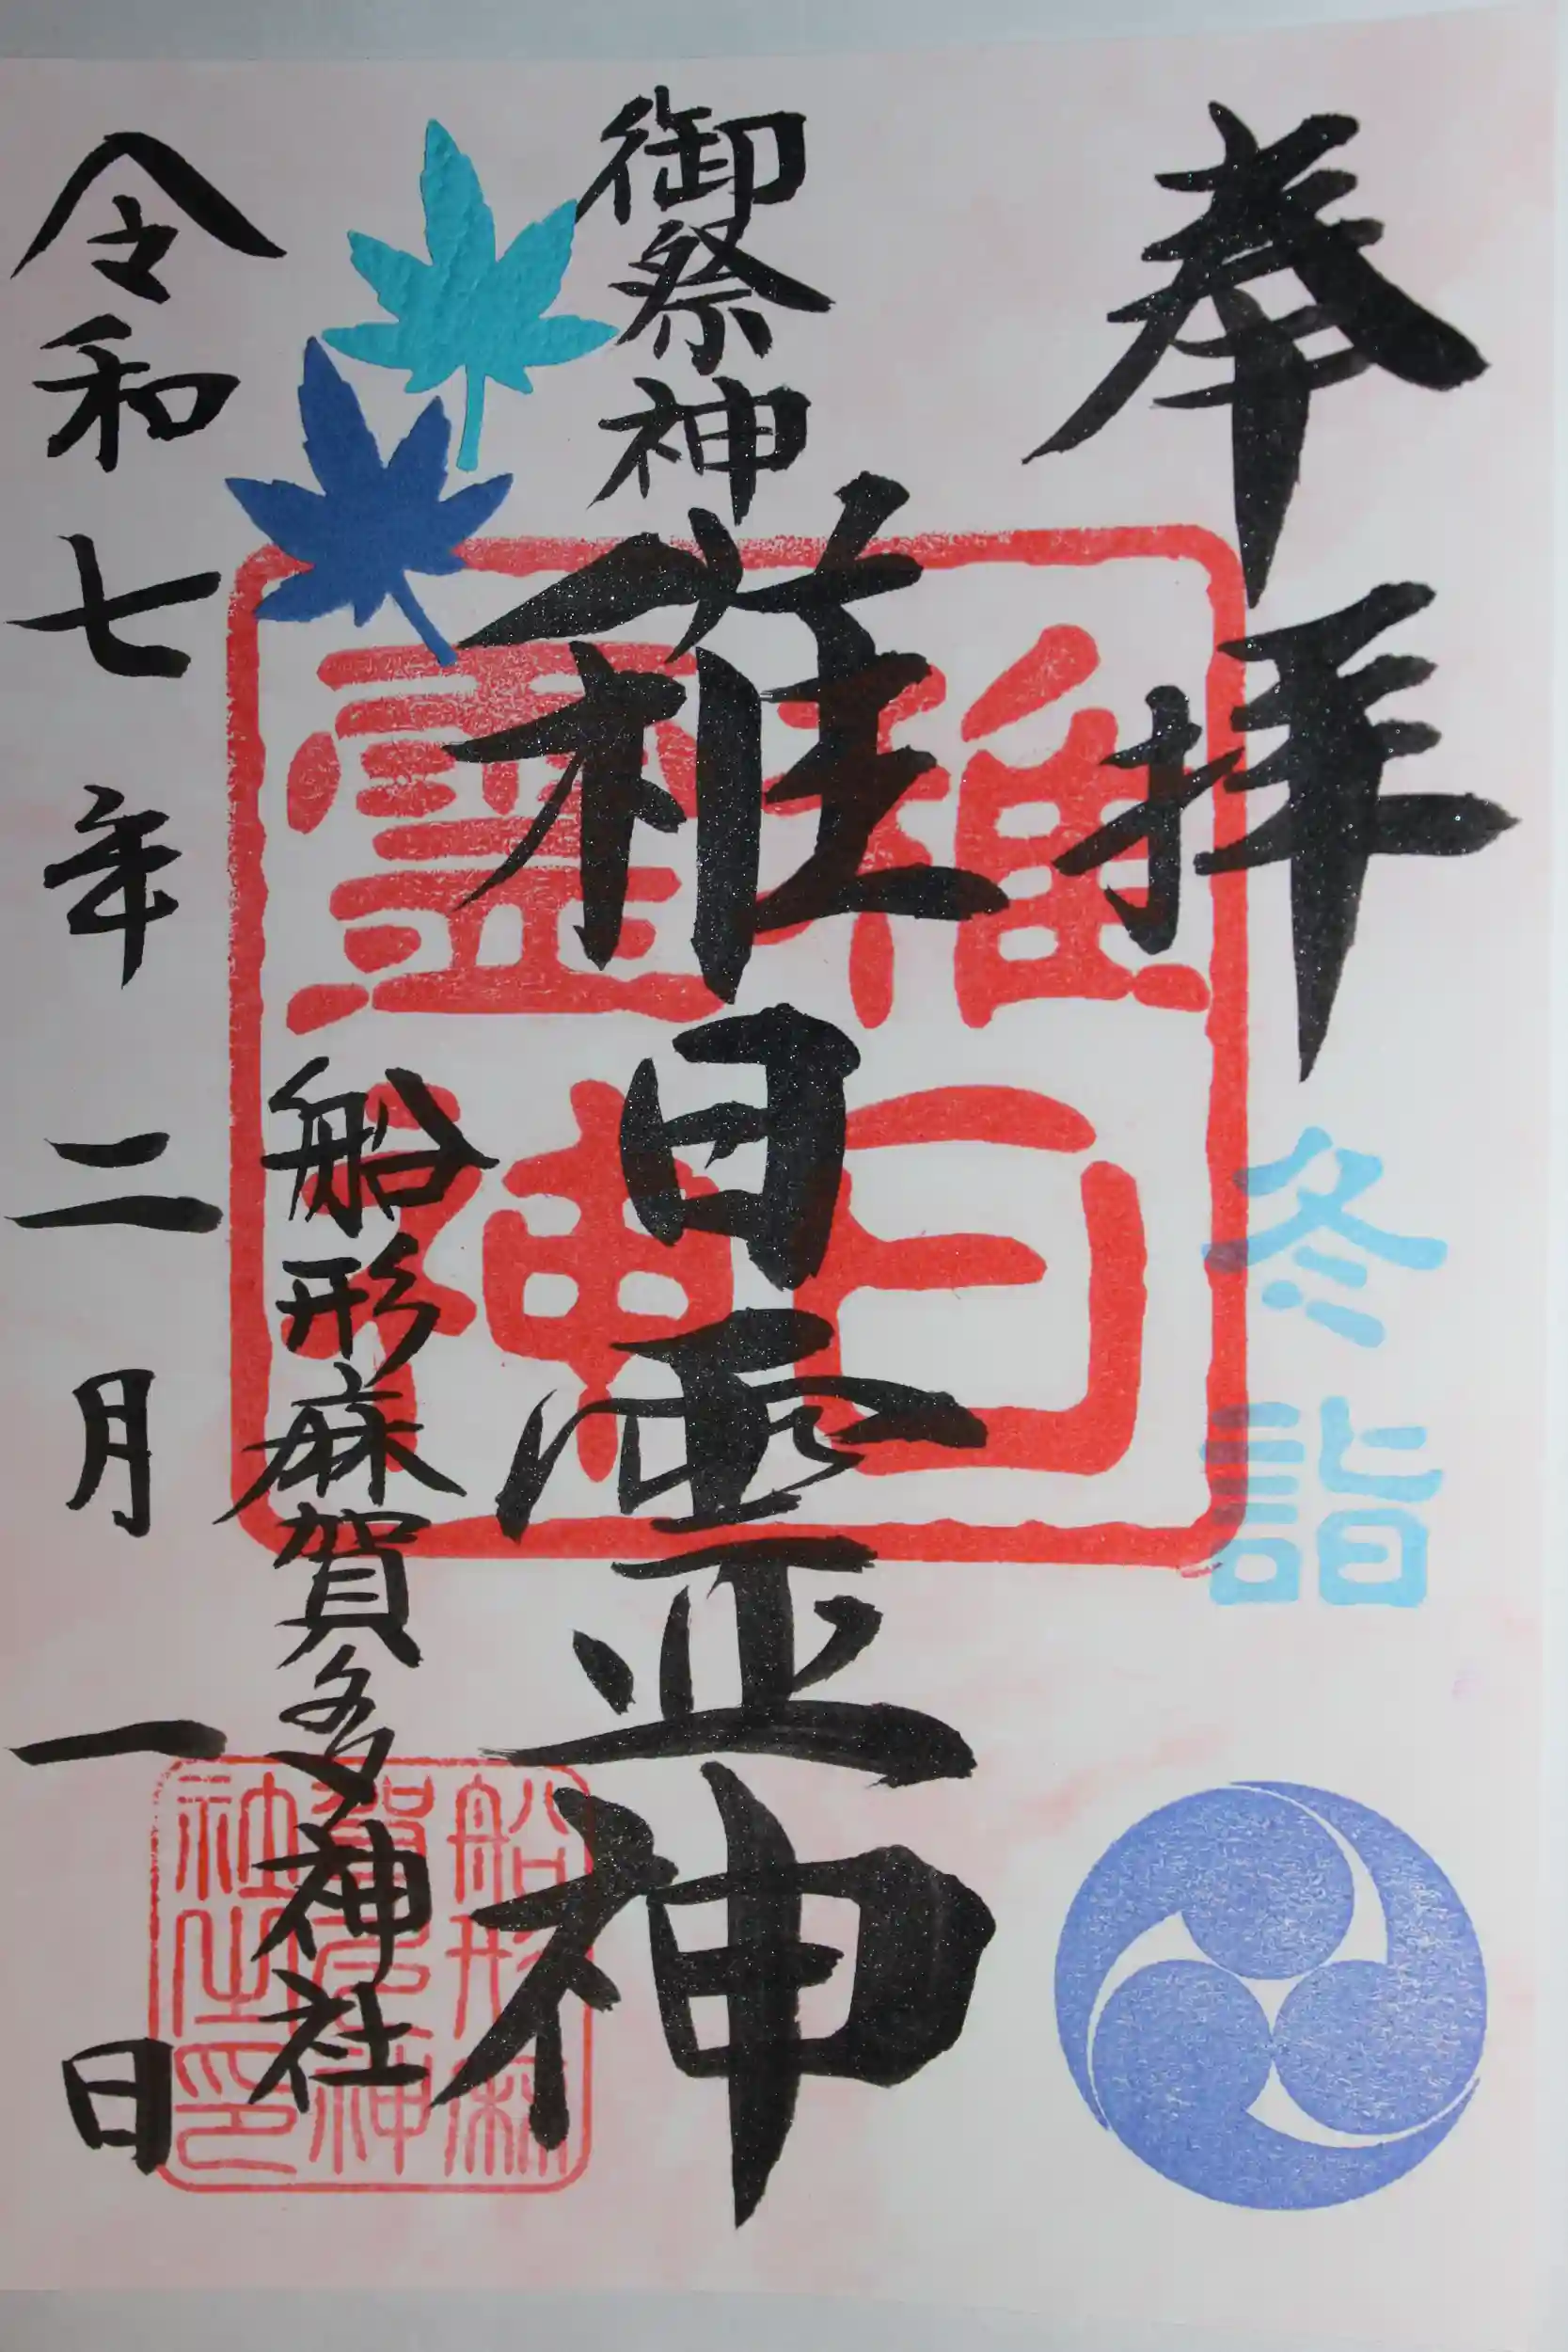 奉拝
冬詣
御祭神
稚日霊神
稚日
霊神
船形麻賀多神社
船形麻
賀多神
社之印
令和七年二月一日